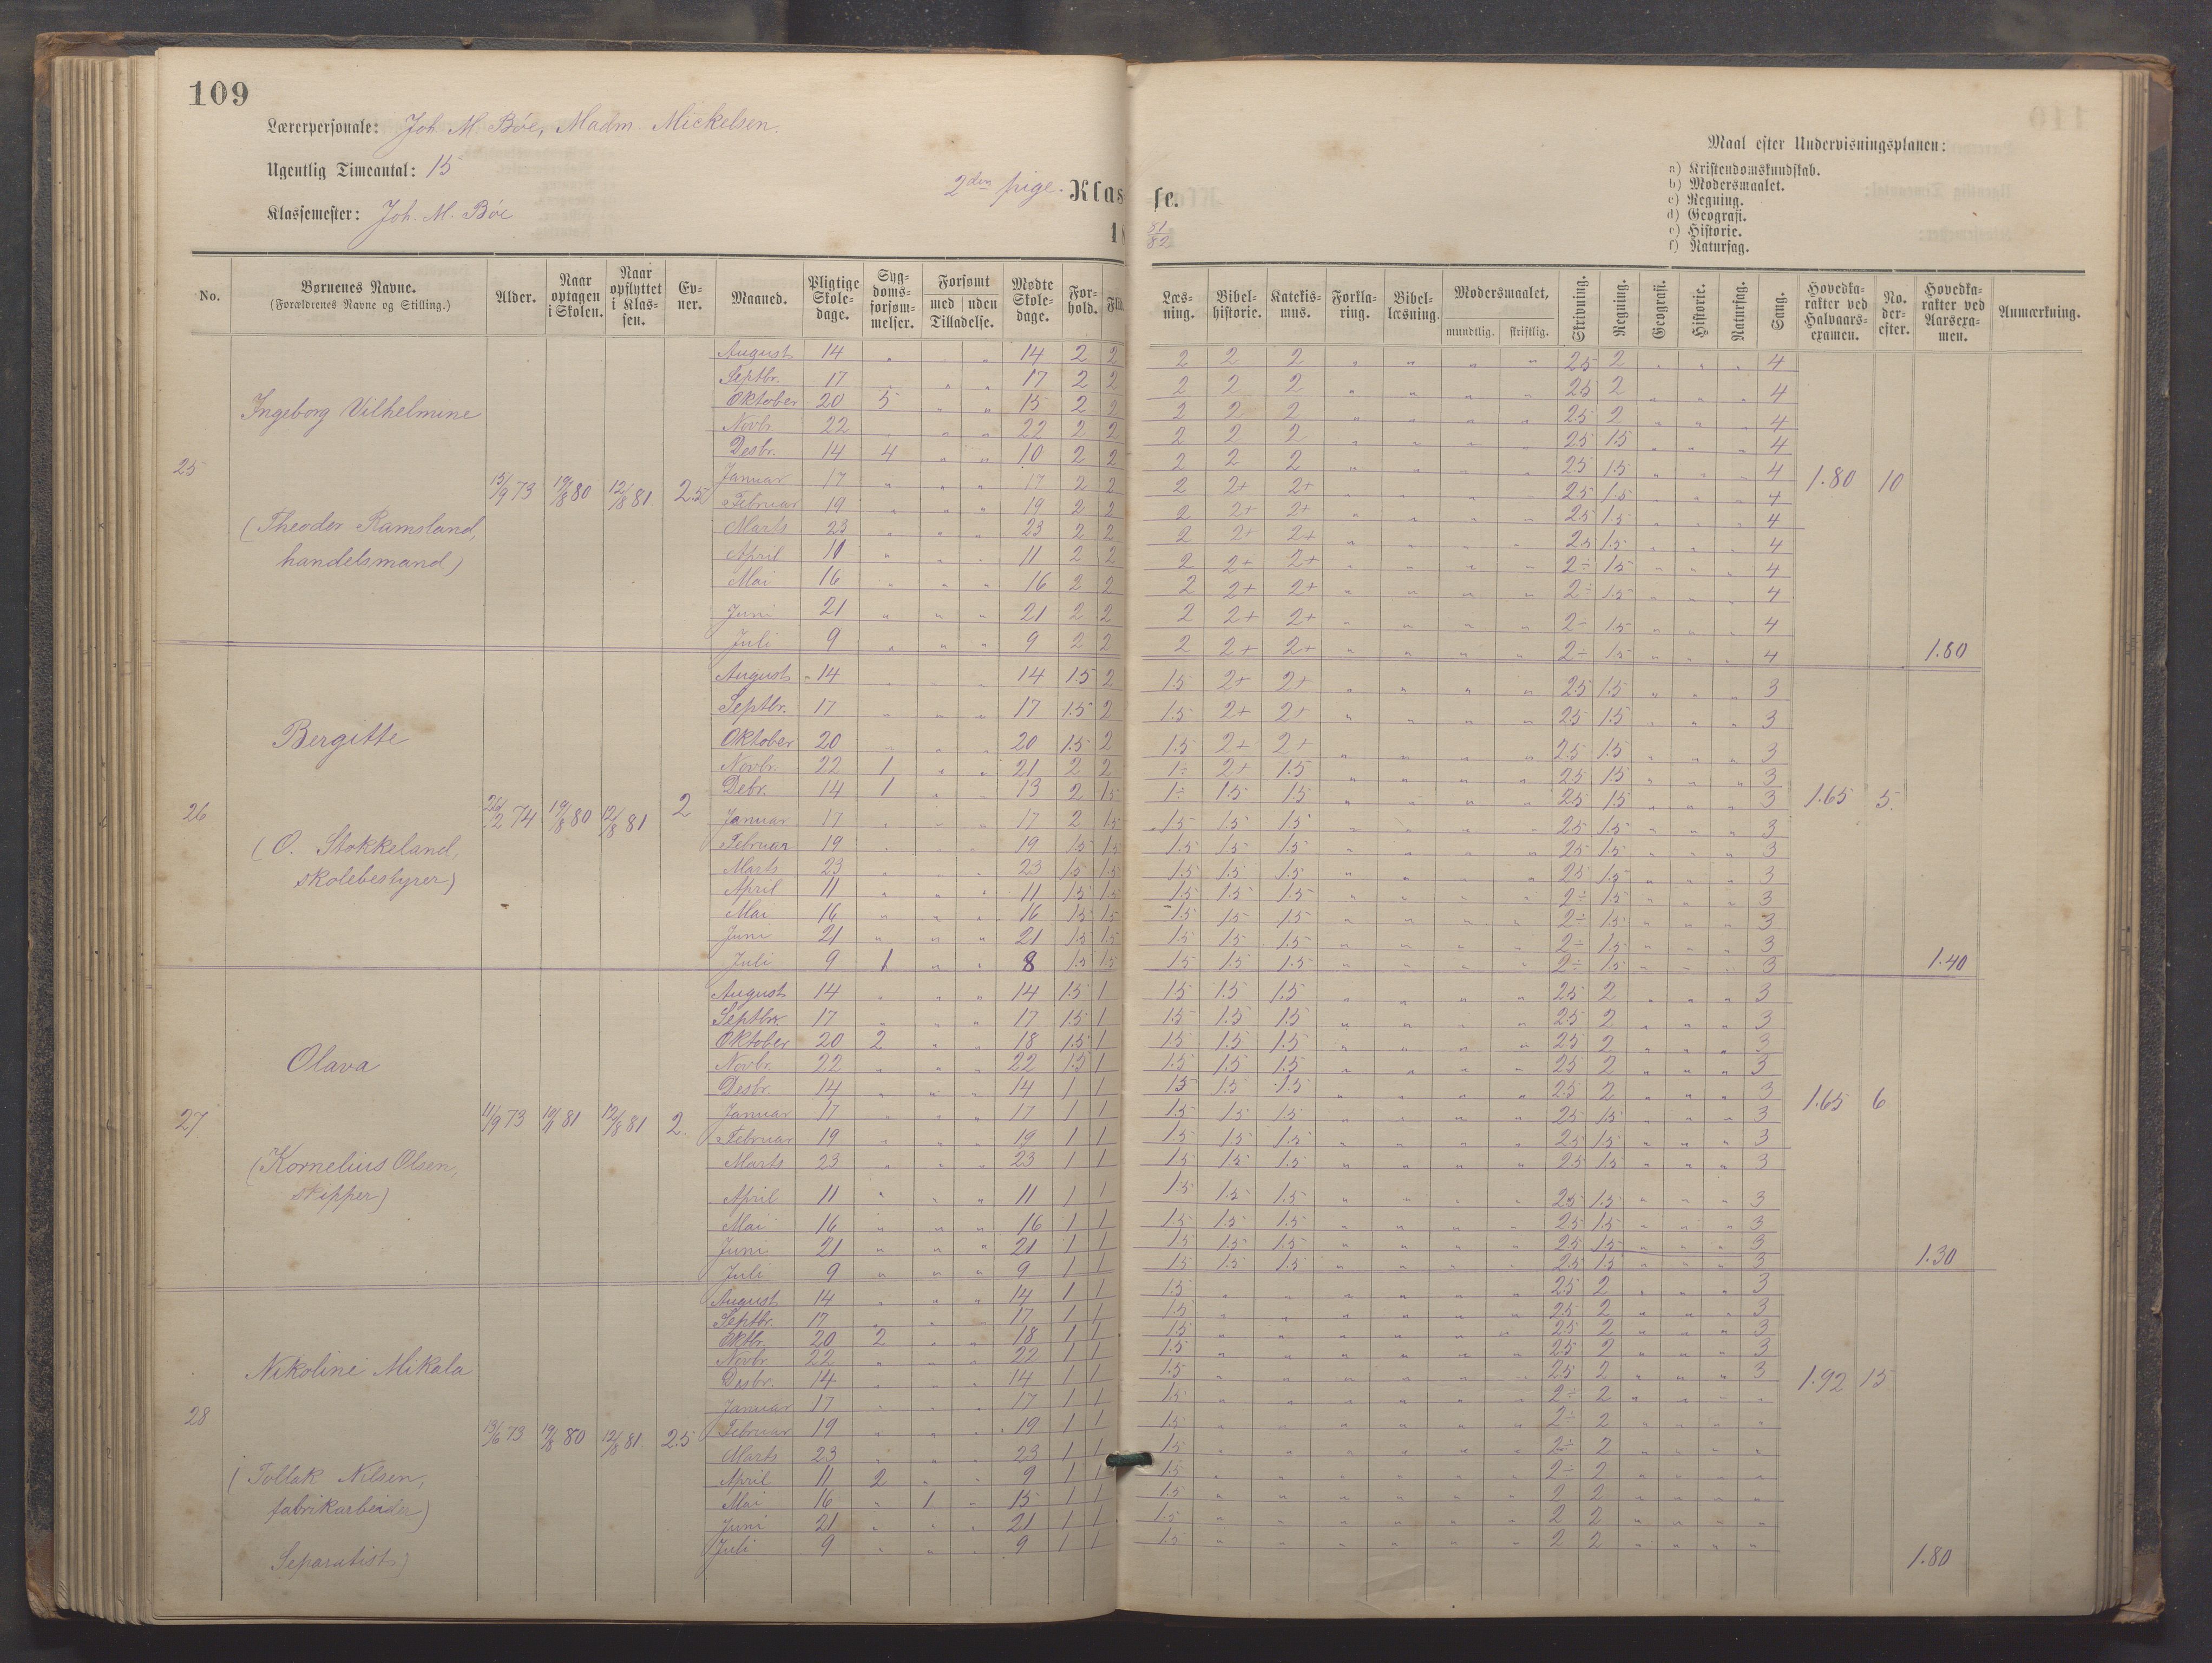 109
Lærerpersonale: Joh. M. Böe, Madm. Mickelsen.
Ugentlig Timeantal: 15
Klassemester: Joh. M. Böe
2den pige- Klasse.
18 81/82
Maal efter Undervisningsplanen:
a) Kristendomskundskab.
b) Modersmaalet.
c) Regning.
d) Geografi.
e) Historie.
f) Naturfag.
No. | Børnenes Navne. (Forældrenes Navne og Stilling.) | Alder. | Naar optagen i Skolen. | Naar opflyttet i Klassen. | Evner. | Maaned. | Pligtige Skoledage. | Sygdomsforsømmelser. | Forsømt med Tilladelse. | uden Tilladelse. | Mødte Skoledage. | Forhold. | Fli | Læsning. | Bibelhistorie. | Katekismus. | Forklaring. | Bibellæsning. | Modersmaalet, mundtlig. | skriftlig. | Skrivning. | Regning. | Geografi. | Historie. | Naturfag. | Sang. | Hovedkarakter ved Halvaarsexamen. | No. derefter. | Hovedkarakter ved Aarsexamen. | Anmærkning.
25 Ingeborg Vilhelmine (Theodor Ramsland, handelsmand) 15/9 73 19/8 80 12/8 81 2.5
August 14 " " " 14 2 2 2 2 2 " " " " 2.5 2 " " " 4
Septbr. 17 " " " 17 2 2 2 2 2 " " " " 2.5 2 " " " 4
Oktober 20 5 " " 15 2 2 2 2 2 " " " " 2.5 2 " " " 4
Novbr. 22 " " " 22 2 2 2 2 2 " " " " 2.5 1.5 " " " 4
Desbr. 14 4 " " 10 2 2 2 2 2 " " " " 2.5 1.5 " " " 4
Januar 17 " " " 17 2 2 2 2+ 2+ " " " " 2.5 1.5 " " " 4 1.80 10
Februar 19 " " " 19 2 2 2 2+ 2+ " " " " 2.5 1.5 " " " 4
Marts 23 " " " 23 2 2 2 2+ 2+ " " " " 2.5 1.5 " " " 4
April 11 " " " 11 2 2 2 2+ 2+ " " " " 2÷ 1.5 " " " 4
Mai 16 " " " 16 2 2 2 2+ 2+ " " " " 2÷ 1.5 " " " 4
Juni 21 " " " 21 2 2 2 2+ 2+ " " " " 2÷ 1.5 " " " 4
Juli 9 " " " 9 2 2 2 2+ 2+ " " " " 2÷ 1.5 " " " 4 1.80
26 Bergitte (O. Stokkeland, skolebestyrer) 74 19/8 80 12/8 81 2
August 14 " " " 14 1.5 2 1.5 2+ 2+ " " " " 2.5 1.5 " " " 3
Septbr. 17 " " " 17 1.5 2 1.5 2+ 2+ " " " " 2.5 1.5 " " " 3
Oktober 20 " " " 20 1.5 2 1.5 2+ 2+ " " " " 2.5 1.5 " " " 3
Novbr. 22 1 " " 21 2 2 1÷ 2+ 1.5 " " " " 2.5 1.5 " " " 3
Debr. 14 1 " " 13 2 1.5 1÷ 1.5 1.5 " " " " 2.5 1.5 " " " 3 1.65 5.
Januar 17 " " " 17 2 1.5 1.5 1.5 1.5 " " " " 2.5 1.5 " " " 3
Februar 19 " " " 19 1.5 1.5 1.5 1.5 1.5 " " " " 2.5 1.5 " " " 3
Marts 23 " " " 23 1.5 1.5 1.5 1.5 1.5 " " " " 2.5 1.5 " " " 3
April 11 " " " 11 1.5 1.5 1.5 1.5 1.5 " " " " 2÷ 1.5 " " " 3
Mai 16 " " " 16 1.5 1.5 1.5 1.5 1.5 " " " " 2÷ 1.5 " " " 3
Juni 21 " " " 21 1.5 1.5 1.5 1.5 1.5 " " " " 2÷ 1.5 " " " 3
Juli 9 1 " " 8 1.5 1.5 1.5 1.5 1.5 " " " " 2÷ 1.5 " " " 3 1.40
27 Olava (Kornelius Olsen, skipper) 11/9 73 81 12/8 81 2
August 14 " " " 14 1.5 1 1.5 1.5 1.5 " " " " 2.5 2 " " " 3
Septbr. 17 " " " 17 1.5 1 1.5 1.5 1.5 " " " " 2.5 2 " " " 3
Oktober 20 2 " " 18 1.5 1 1.5 1.5 1.5 " " " " 2.5 2 " " " 3
Novbr. 22 " " " 22 1.5 1 1.5 1.5 1.5 " " " " 2.5 2 " " " 3
Desbr. 14 " " " 14 1 1 1.5 1.5 1.5 " " " " 2.5 2 " " " 3 1.65 6
Januar 17 " " " 17 1 1 1.5 1.5 1.5 " " " " 2.5 1.5 " " " 3
Februar 19 " " " 19 1 1 1.5 1.5 1.5 " " " " 2.5 1.5 " " " 3
Marts 23 " " " 23 1 1 1.5 1.5 1.5 " " " " 2.5 1.5 " " " 3
April 11 " " " 11 1 1 1.5 1.5 1.5 " " " " 2.5 1.5 " " " 3
Mai 16 " " " 16 1 1 1.5 1.5 1.5 " " " " 2.5 1.5 " " " 3
Juni 21 " " " 21 1 1 1.5 1.5 1.5 " " " " 2.5 1.5 " " " 3
Juli 9 " " " 9 1 1 1.5 1.5 1.5 " " " " 2.5 1.5 " " " 3 1.30
28 Nikoline Mikala (Tollak Nilsen, fabrikarbeider) Separatist) 13/6 73 19/8 80 12/8 81 2.5
August 14 " " " 14 1 1 1.5 " " " " " " 2.5 2 " " " 3
Septbr. 17 " " " 17 1 1 1.5 " " " " " " 2.5 2 " " " 3
Oktbr. 20 2 " " 18 1 1 1.5 " " " " " " 2.5 2 " " " 3
Novbr. 22 " " " 22 1 1 1.5 " " " " " " 2.5 2 " " " 3
Desbr. 14 " " " 14 1 1 1.5 " " " " " " 2.5 2 " " " 3 1.92 15
Januar 17 " " " 17 1 1 1.5 " " " " " " 2÷ 2 " " " "
Februar 19 " " " 19 1 1 1.5 " " " " " " 2÷ 2 " " " "
Marts 23 " " " 23 1 1 1.5 " " " " " " 2÷ 2 " " " "
April 11 2 " " 9 1 1 1.5 " " " " " " 2÷ 2 " " " "
Mai 16 " 1 " 15 1 1 1.5 " " " " " " 2 2 " " " "
Juni 21 " " " 21 1 1 1.5 " " " " " " 2 2 " " " "
Juli 9 " " " 9 1 1 1.5 " " " " " " 2 2 " " " " 1.80